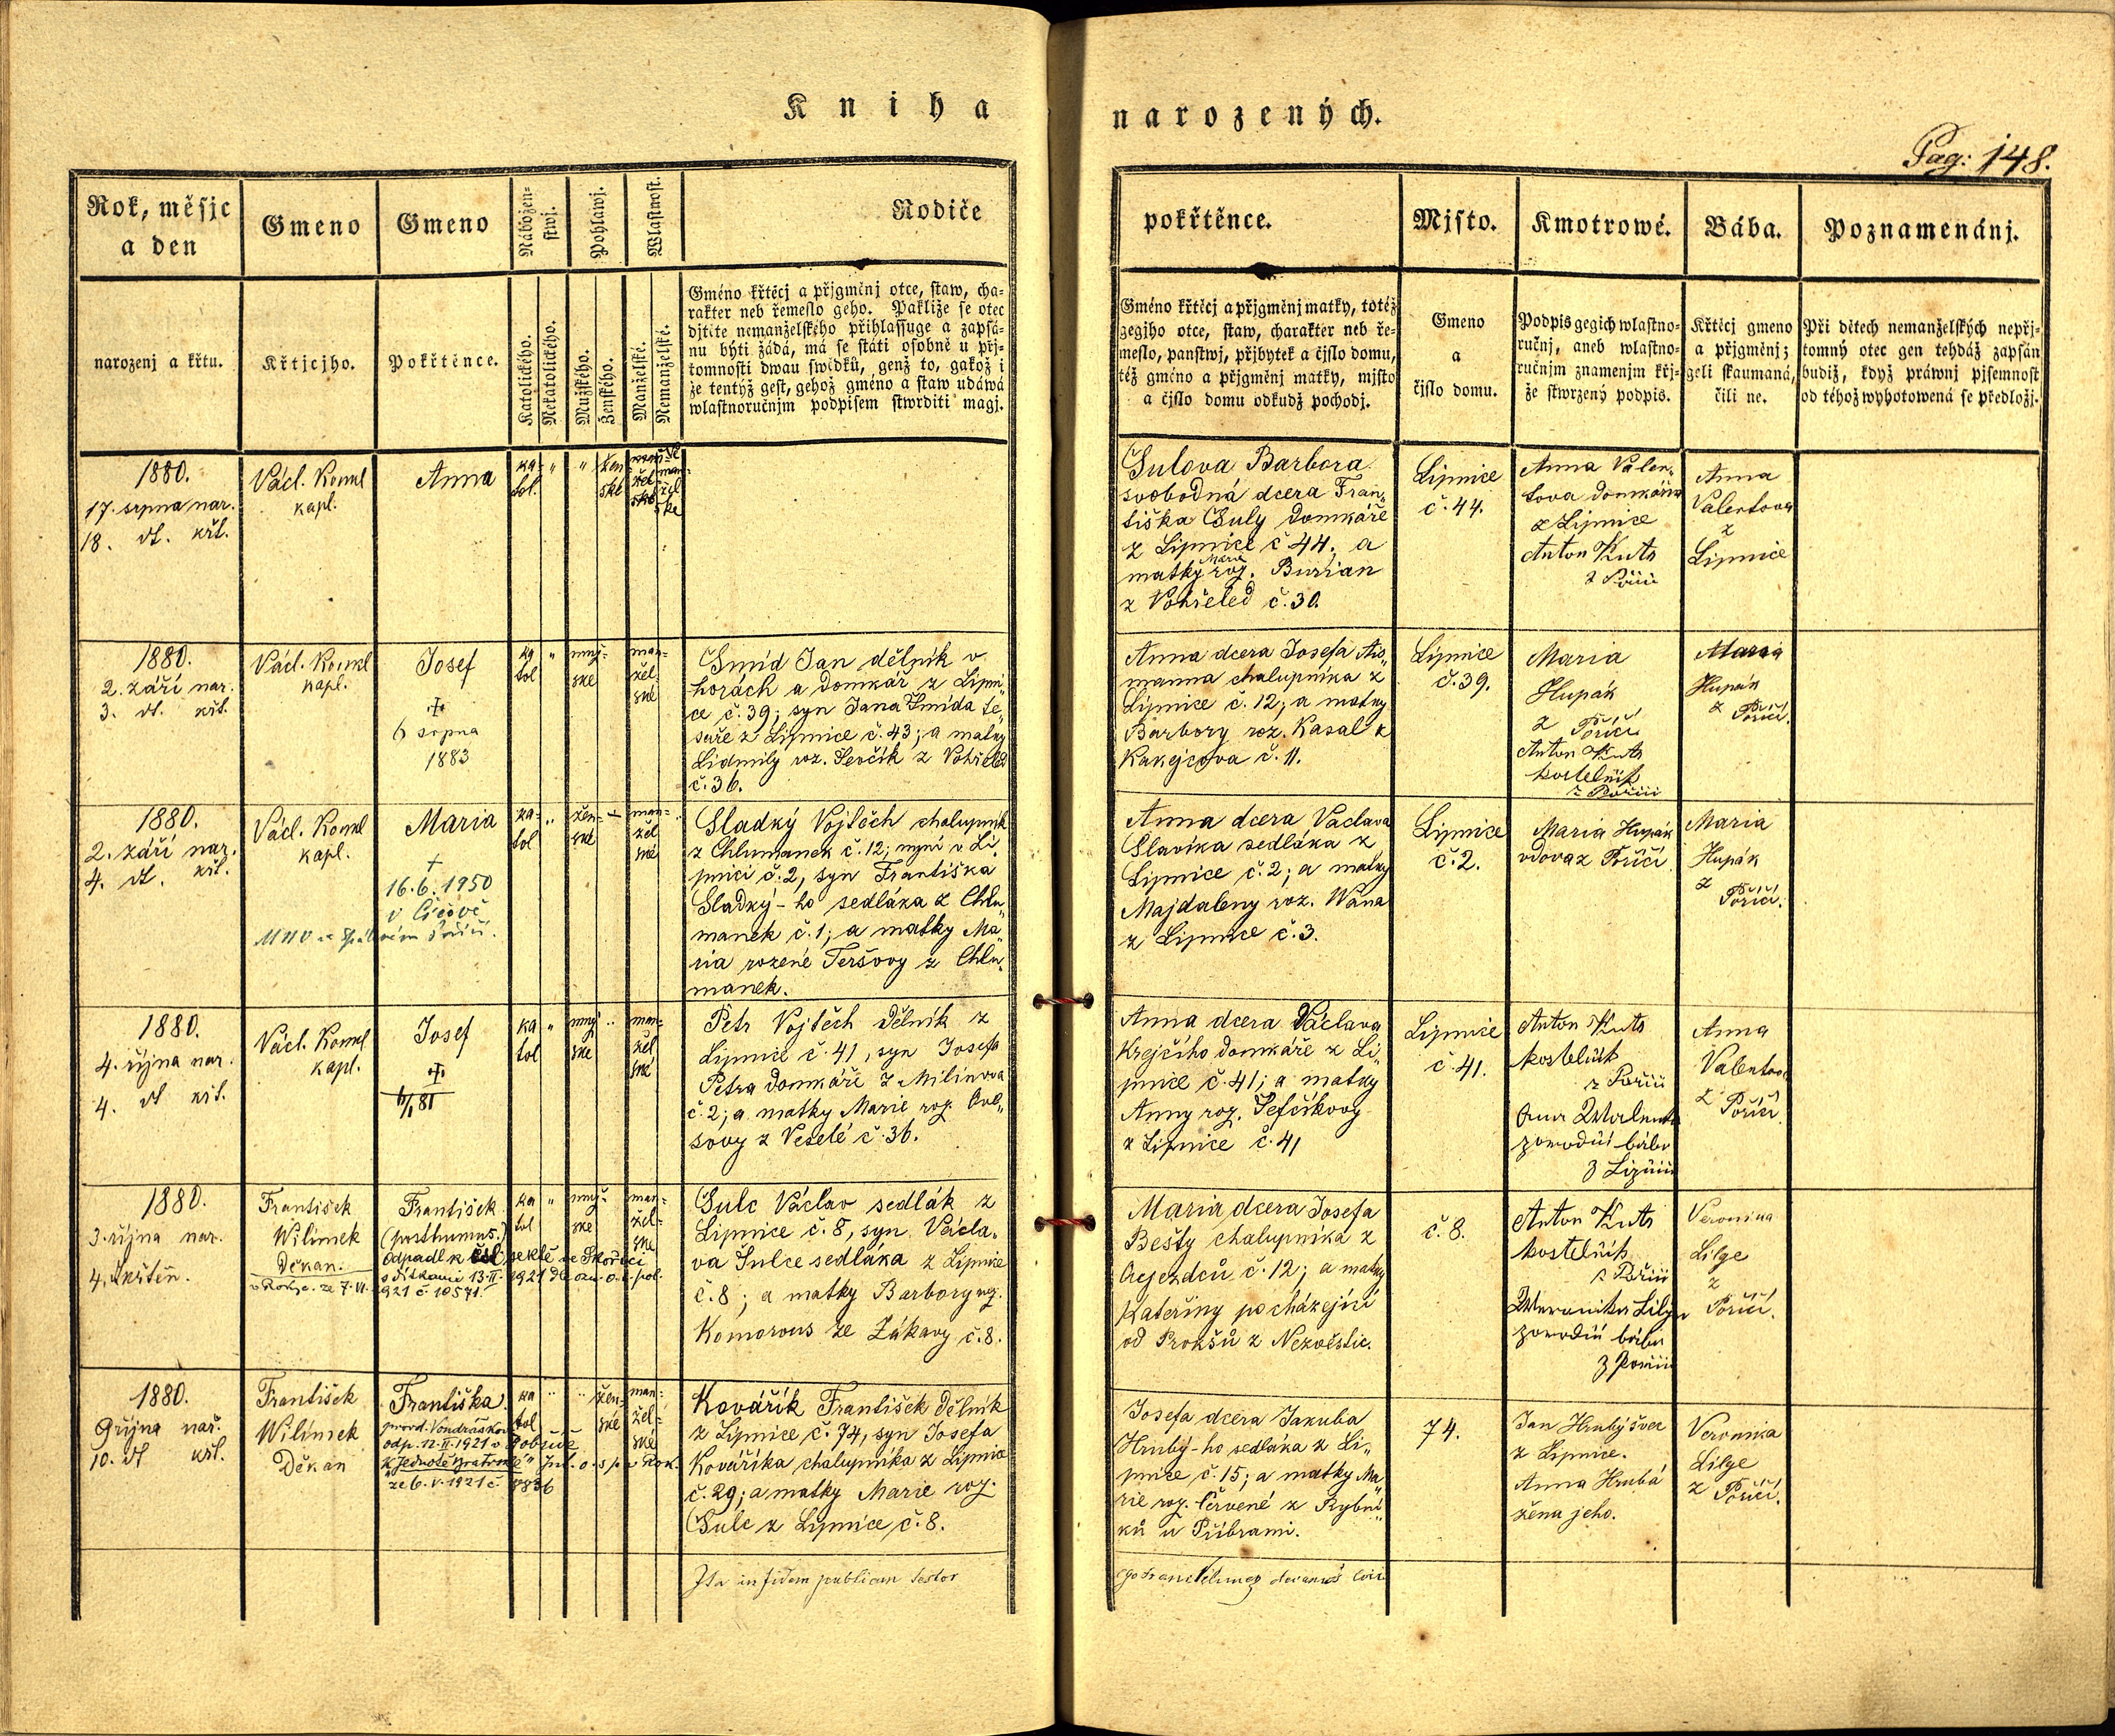 Kniha
narozených.
Pag: 148.
Rok, měsjc
a den
Gmeno
Gmeno
Nábožen=
stwj.
Pohlawj.
Wlastnost.
Rodiče
narozenj a křtu.
Křtjcjho.
Pokřtěnce.
Katolického.
Nekatolického.
Mužského.
Ženského.
Manželské.
Nemanželské.
Gméno křtěcj a přjgměnj otce, staw, cha=
rakter neb řemeslo geho. Pakliže se otec
djtěte nemanželského přihlassuge a zapsá=
nu býti žádá, má se státi osobně u přj=
tomnosti dwau swědků, genž to, gakož i
že tentýž gest, gehož gméno a staw udáwá
wlastnoručnjm podpisem stwrditi magj.
pokřtěnce.
Mjsto.
Kmotrowé.
Bába.
Poznamenánj.
Gméno křtěcj a přjgměnj matky, totéž
gegjho otce, staw, charakter neb ře=
meslo, panstwj, přjbytek a čjslo domu,
též gméno a přjgměnj matky, mjsto
a čjslo domu odkudž pochodj.
Gmeno
a
čjslo domu.
Podpis gegich wlastno=
ručnj, aneb wlastno=
ručnjm znamenjm křj=
že stwrzený podpis.
Křtěcj gmeno
a přjgměnj;
geli skaumaná,
čili ne.
Při dětech nemanželských nepřj=
tomný otec gen tehdáž zapsán
budiž, když práwnj pjsemnost
od téhož wyhotowená se předložj.
1880.
17. srpna nar.
18. dt. křt.
Václ. Kouml
kapl.
Anna
ka=
tol.
" "
žen
ské
Šulova Barbora
svobodná dcera Fran„
tiška Šuly domkáře
z Lipnice č 44; a
matky Marie roz. Burian
z Vohřeled č. 30.
Lipnice
č. 44.
Anna Valen„
tova domkářka
z Lipnice
Anton Kuts
z Poříčí
Anna
Valentova
z
Lipnice
1880.
2. září nar.
3. dt. křt.
Václ. Kouml
kapl.
Josef
6 srpna
1883
ka
tol
"
muž=
ské
man=
žel
ské
Šmíd Jan dělník v
horách a domkář z Lipni„
ce č. 39; syn Jana Šmída te„
saře z Lipnice č. 43; a matky
Lidmily roz. Ševčík z Vohřeled
č. 36.
Anna dcera Josefa Ais„
manna chalupníka z
Lipnice č. 12; a matky
Barbory roz. Kasal z
Kakejcova č. 11.
Lipnice
č. 39.
Maria
Hupák
z Poříčí
Anton Kuts
kostelník
z Poříčí
Maria
Hupák
z Poříčí.
1880.
2. září nar.
4. dt. křt.
Václ. Kouml
kapl.
Maria
+
16.6.1950
v Číčově
MNV ve Spáleném Poříčí.
ka=
tol
"
žen=
ské
man=
žel
ské
Sladký Vojtěch chalupník
z Chlumanek č. 12; nyní v Li„
pnici č. 2, syn Františka
Sladký-ho sedláka z Chlu„
manek č. 1; a matky Ma„
ria rozené Teršovy z Chlu„
manek.
Anna dcera Vaclava
Slavíka sedláka z
Lipnice č. 2; a matky
Majdaleny roz. Wána
z Lipnice č. 3.
Lipnice
č. 2.
Maria Hupák
vdova z Poříčí
Maria
Hupák
z
Poříčí.
1880.
4. října nar.
4. dt křt.
Václ. Kouml
kapl.
Josef
6/1 81
ka
tol
"
muž
ské
man=
žel
ské
Petr Vojtěch Dělník z
Lipnice č. 41, syn Josefa
Petra domkáře z Milínova
č. 2; a matky Marie roz. Ove„
sovy z Veselé č. 36.
Anna dcera Václava
Krejčího domkáře z Li„
pnice č. 41; a matky
Anny roz. Šefčíkovy
z Lipnice č. 41
Lipnice
č. 41.
Anton Kuts
kostelník
z Poříčí
Anna Walenta
porodní bába
z Lipnice
Anna
Valentova
z Poříčí.
1880.
3. října nar.
4. dt křtěn.
František
Wilímek
Děkan.
František
(posthumus.)
Odpadl k čsl sektě ve Skořici
s dítkami 13.II. 1921 dle ozn. o. s. pol.
v Rokyc. ze 7.VI. 921 č. 10571.
ka
tol
"
muž=
ské
man=
žel=
ské
Šulc Václav sedlák z
Lipnice č. 8, syn Václa„
va Šulce sedláka z Lipnice
č. 8; a matky Barbory roz.
Komorous ze Žákavy č. 8.
Maria dcera Josefa
Bešty chalupníka z
Oujezdců č. 12; a matky
Kateřiny pocházející
od Prokšů z Nezvěstic.
č. 8.
Anton Kuts
kostelník
z Poříčí
Weronika Lilge
porodní bába
z Poříčí
Veronika
Lilge
z
Poříčí.
1880.
9 října nař.
10. dt křt.
František
Wilímek
Děkan
Františka
provd. Vondrášková
odp. 12.II.1921 v Dobřívě
k "Jednotě bratrské"
ze 6.V.1921 č. 8836
ka
tol
" "
žen=
ské
man=
žel=
ské
Kovářík František Dělník
z Lipnice č. 74, syn Josefa
Kováříka chalupníka z Lipnice
č. 29; a matky Marie roz.
Šulc z Lipnice č. 8.
Josefa dcera Jakuba
Hrubý-ho sedláka z Li„
pnice č. 15; a matky Ma„
rie roz. Červené z Rybní„
ků u Příbrami.
74.
Jan Hrubý švec
z Lipnice.
Anna Hrubá
žena jeho.
Veronika
Lilge
z Poříčí.
Ita in fidem publicam testor